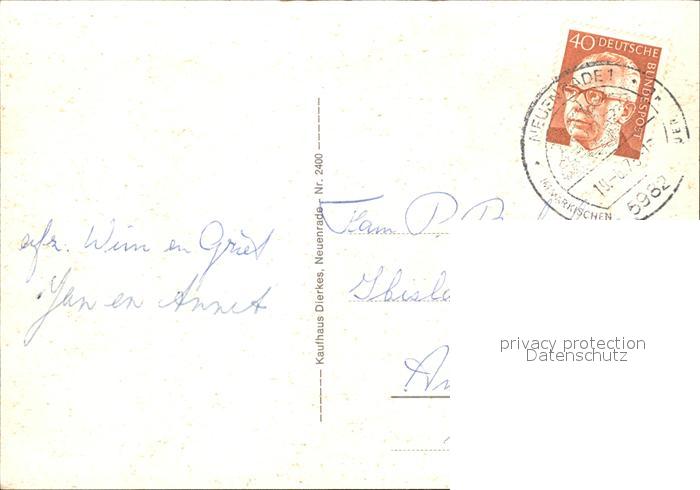 40 DEUTSCHE BUNDESPOST
NEUENRADE 1
5982
IM MÄRKISCHEN
Kaufhaus Dierkes, Neuenrade - Nr. 2400
afz. Wim en Griet
Jan en Annet
Fam P.
privacy protection
Datenschutz